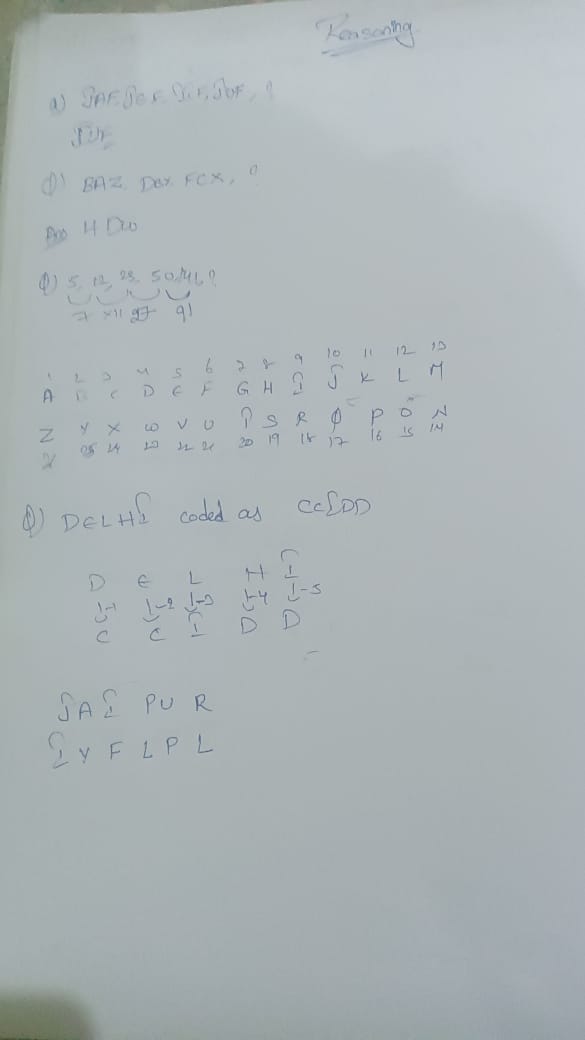 Reasoning
a) JAF, JEF, JIF, JOF, ?
JUF
Q) BAZ, DBY, FCX, ?
Ans HDW
Q) 5, 12, 23, 50, 141, ?
7 x11 27 91
1 2 3 4 5 6 7 8 9 10 11 12 13
A B C D E F G H I J K L M
Z Y X W V U T S R Q P O N
25 24 23 22 21 20 19 18 17 16 15 14
Q) DELHI coded as CCIDD
D E L H I
-1 -2 -3 -4 -5
C C I D D
JAI PU R
I Y F L P L